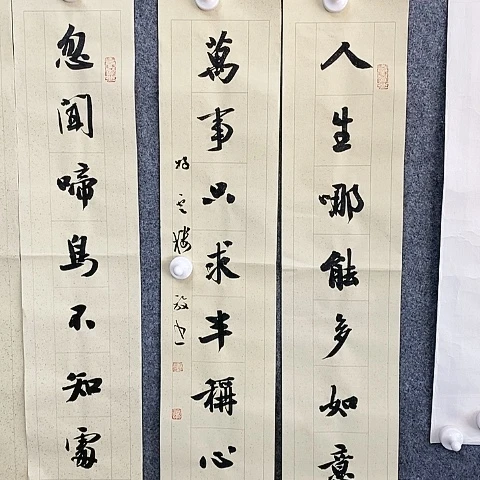 人生哪能多如意
萬事只求半稱心
忽聞啼鳥不知處